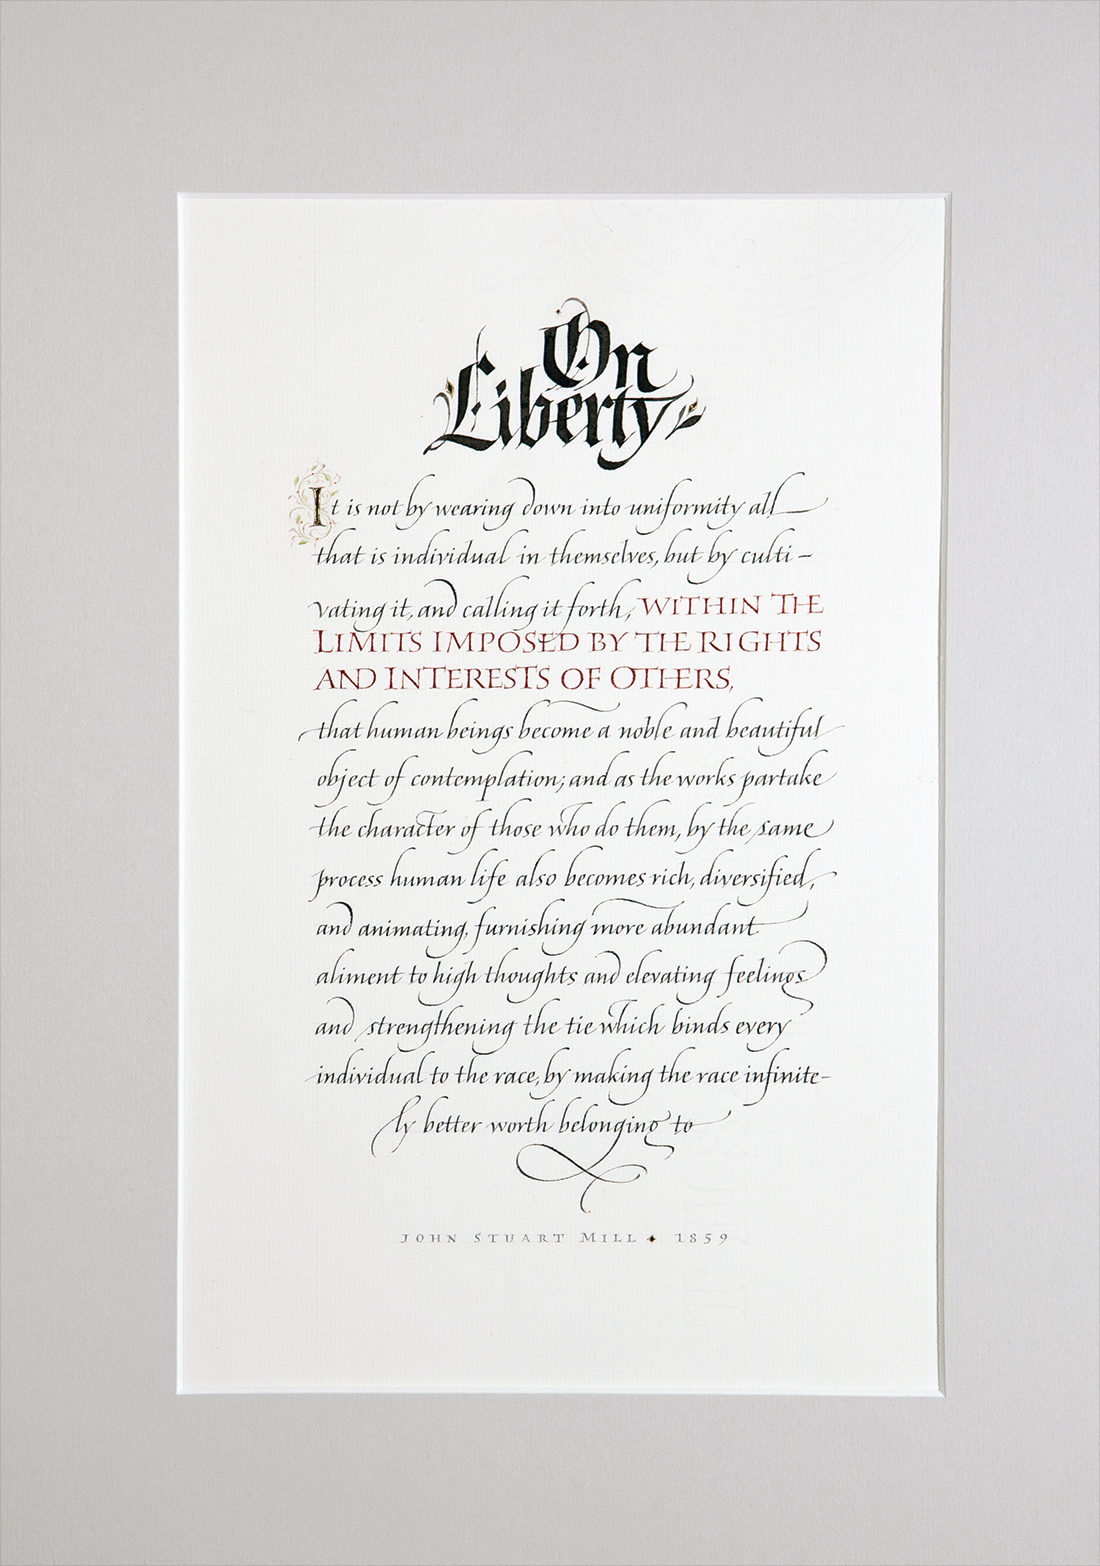 On
Liberty
It is not by wearing down into uniformity all
that is individual in themselves, but by culti-
vating it, and calling it forth, WITHIN THE
LIMITS IMPOSED BY THE RIGHTS
AND INTERESTS OF OTHERS,
that human beings become a noble and beautiful
object of contemplation; and as the works partake
the character of those who do them, by the same
process human life also becomes rich, diversified,
and animating, furnishing more abundant
aliment to high thoughts and elevating feelings
and strengthening the tie which binds every
individual to the race, by making the race infinite-
ly better worth belonging to
JOHN STUART MILL ✦ 1859